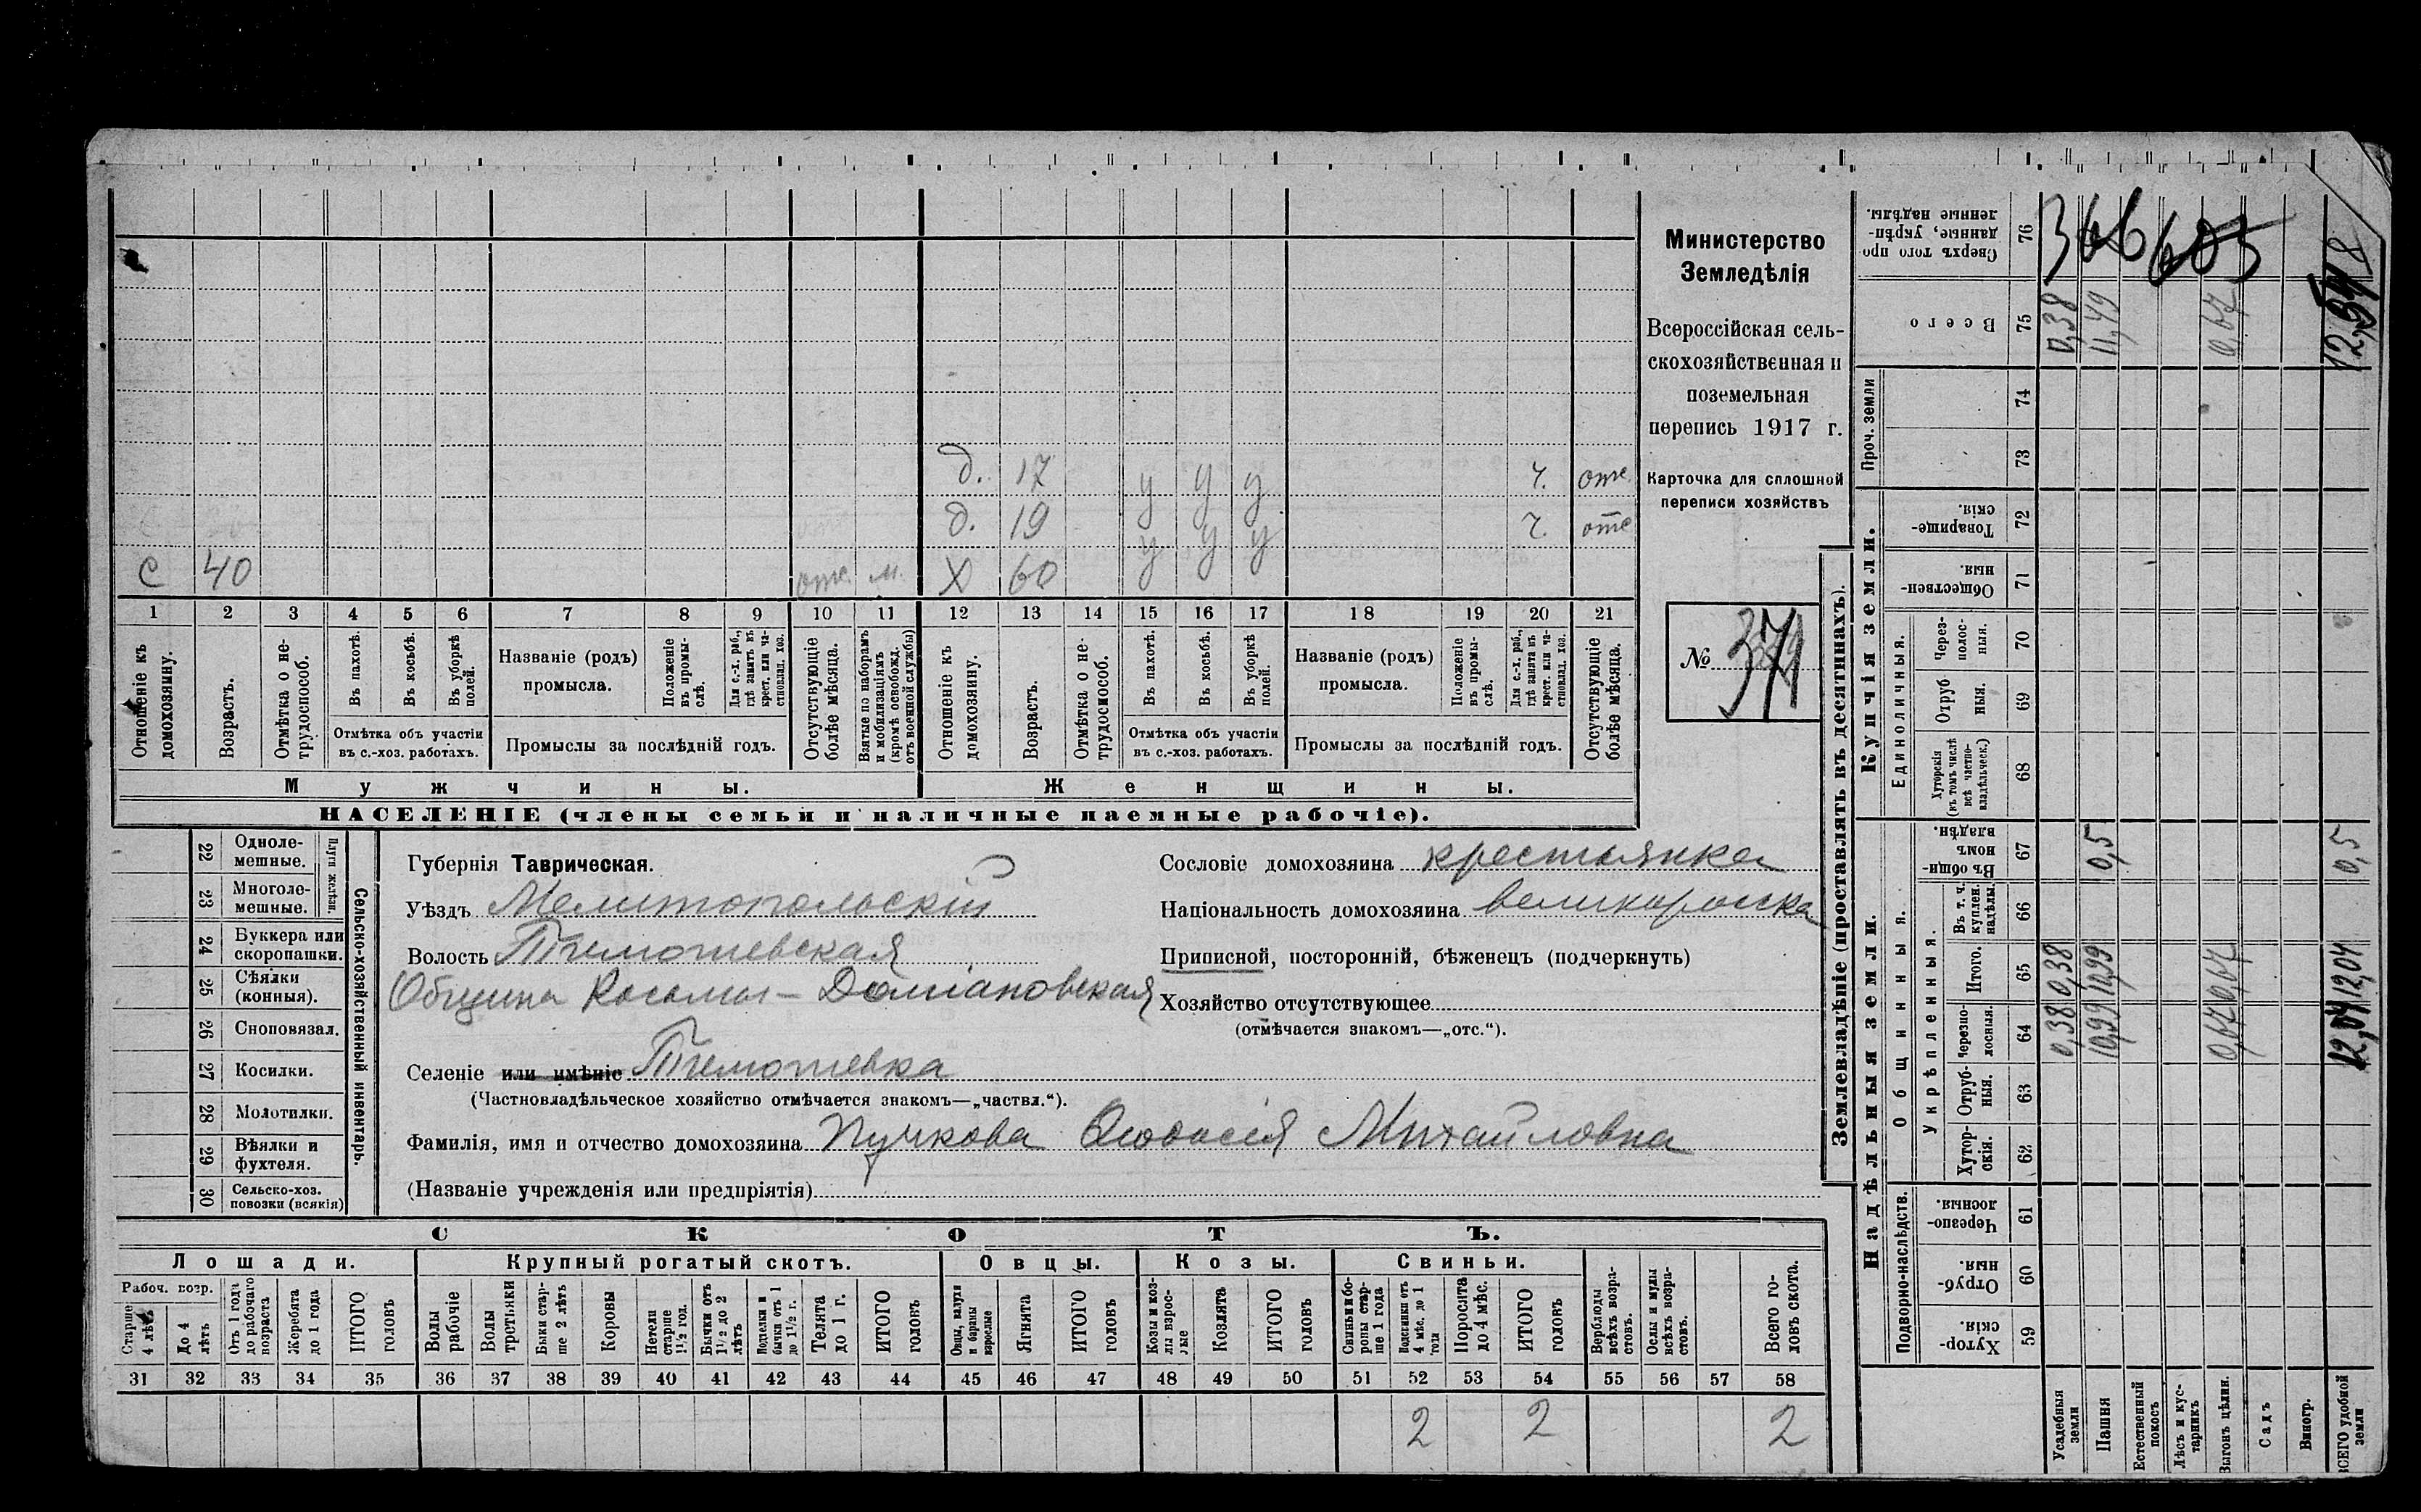 д. 17 у у у ч. отс.
д. 19 у у у ч. отс
С 40 отс. м. Х 60
1 2 3 4 5 6 7 8 9 10 11 12 13 14 15 16 17 18 19 20 21
Отношеніе къ домохозяину.
Возрастъ.
Отмѣтка о нетрудоспособ.
Въ пахотѣ.
Въ косьбѣ.
Въ уборкѣ полей.
Отмѣтка объ участіи
въ с.-хоз. работахъ.
Названіе (родъ)
промысла.
Положеніе въ промыслѣ.
Для с.-х. раб., гдѣ занятъ въ крест. или частновлад. хоз.
Промыслы за послѣдній годъ.
Отсутствующіе болѣе мѣсяца.
Взятые по наборамъ и мобилизаціямъ (кромѣ освобожд. отъ военной службы)
Отношеніе къ домохозяину.
Возрастъ.
Отмѣтка о нетрудоспособ.
Въ пахотѣ.
Въ косьбѣ.
Въ уборкѣ полей.
Отмѣтка объ участіи
въ с.-хоз. работахъ.
Названіе (родъ)
промысла.
Положеніе въ промыслѣ.
Для с.-х. раб., гдѣ занята въ крест. или частновлад. хоз.
Промыслы за послѣдній годъ.
Отсутствующіе болѣе мѣсяца.
Мужчины. Женщины.
НАСЕЛЕНІЕ (члены семьи и наличные наемные рабочіе).
Министерство
Земледѣлія
Всероссійская сель-
скохозяйственная и
поземельная
перепись 1917 г.
Карточка для сплошной
переписи хозяйствъ
№
Сельско-хозяйственный инвентарь.
Плуги желѣзн.
22 Одноле-
мешные.
23 Многоле-
мешные.
24 Буккера или
скоропашки.
25 Сѣялки
(конныя).
26 Сноповязал.
27 Косилки.
28 Молотилки.
29 Вѣялки и
фухтеля.
30 Сельско-хоз.
повозки (всякія)
Губернія Таврическая.
Уѣздъ Мелитопольскій
Волость Тимошевская
Община Косьмы-Даміановская
Селеніе или имѣніе Тимошевка
(Частновладѣльческое хозяйство отмѣчается знакомъ—„частвл.“).
Фамилія, имя и отчество домохозяина Пучкова Михайловна
(Названіе учрежденія или предпріятія)
Сословіе домохозяина крестьянка
Національность домохозяина великоросска
Приписной, посторонній, бѣженецъ (подчеркнуть)
Хозяйство отсутствующее
(отмѣчается знакомъ—„отс.“).
СКОТЪ.
Лошади. Крупный рогатый скотъ. Овцы. Козы. Свиньи.
Рабоч. возр.
Старше 4 лѣтъ
До 4 лѣтъ
Отъ 1 года до рабочаго возраста
Жеребята до 1 года
ИТОГО головъ
Волы рабочіе
Волы третьяки
Быки старше 2 лѣтъ
Коровы
Нетели старше 1½ год.
Бычки отъ 1½ до 2 лѣтъ
Подтелки и бычки отъ 1 до 1½ г.
Телята до 1 г.
ИТОГО головъ
Овцы, валухи и бараны взрослые
Ягнята
ИТОГО головъ
Козы и козлы взрослые
Козлята
ИТОГО головъ
Свиньи и боровы старше 1 года
Подсвинки отъ 4 мѣс. до 1 года
Поросята до 4 мѣс.
ИТОГО головъ
Верблюды всѣхъ возрастовъ.
Ослы и мулы всѣхъ возрастовъ.
Всего головъ скота.
31 32 33 34 35 36 37 38 39 40 41 42 43 44 45 46 47 48 49 50 51 52 53 54 55 56 57 58
2 2 2
Землевладѣніе (проставлять въ десятинахъ).
Надѣльныя земли. Купчія земли. Проч. земли
Подворно-наслѣдств. Общинныя. Укрѣпленныя. Единоличныя.
Хутор-
скія. 59
Отруб-
ныя. 60
Черезпо-
лосныя. 61
Хутор-
скія. 62
Отруб-
ныя. 63
Черезпо-
лосныя. 64
Итого. 65
Въ т. ч. куплен. надѣлы. 66
Въ общинномъ владѣн. 67
Хуторскія (въ томъ числѣ всѣ частновладѣльческ.) 68
Отруб
ныя. 69
Через-
полос-
ныя. 70
Обществен-
ныя. 71
Товарище-
скія. 72
73
74
Всего 75
Сверхъ того про
данные, укрѣп-
ленные надѣлы. 76
366 605
Усадебныя земли 0,38 0,38 0,38
Пашня 10,99 10,99 0,5 11,49
Естественный покосъ
Лѣсъ и кустарникъ
Выгонъ цѣлин. 0,67 0,67 0,67
Садъ
Виногр.
ВСЕГО удобной земли 12,04 12,04 0,5